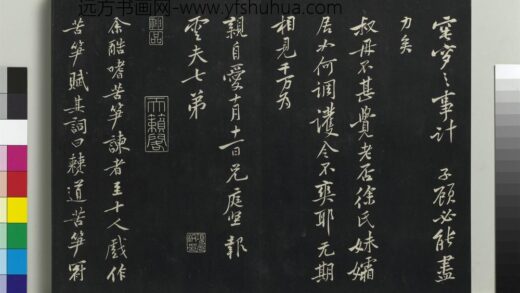 远方书画网 www.yfshuhua.com
窀穸之事計 子顧必能盡
力矣
叔母不甚覺老否徐氏妹孀
居如何調護令不爽耶 无期
相見千万為
親自愛十月十一日兄庭堅報
雲夫七弟
天籟閣
余酷嗜苦笋諫者至十人戲作
苦笋賦其詞曰僰道苦笋冠